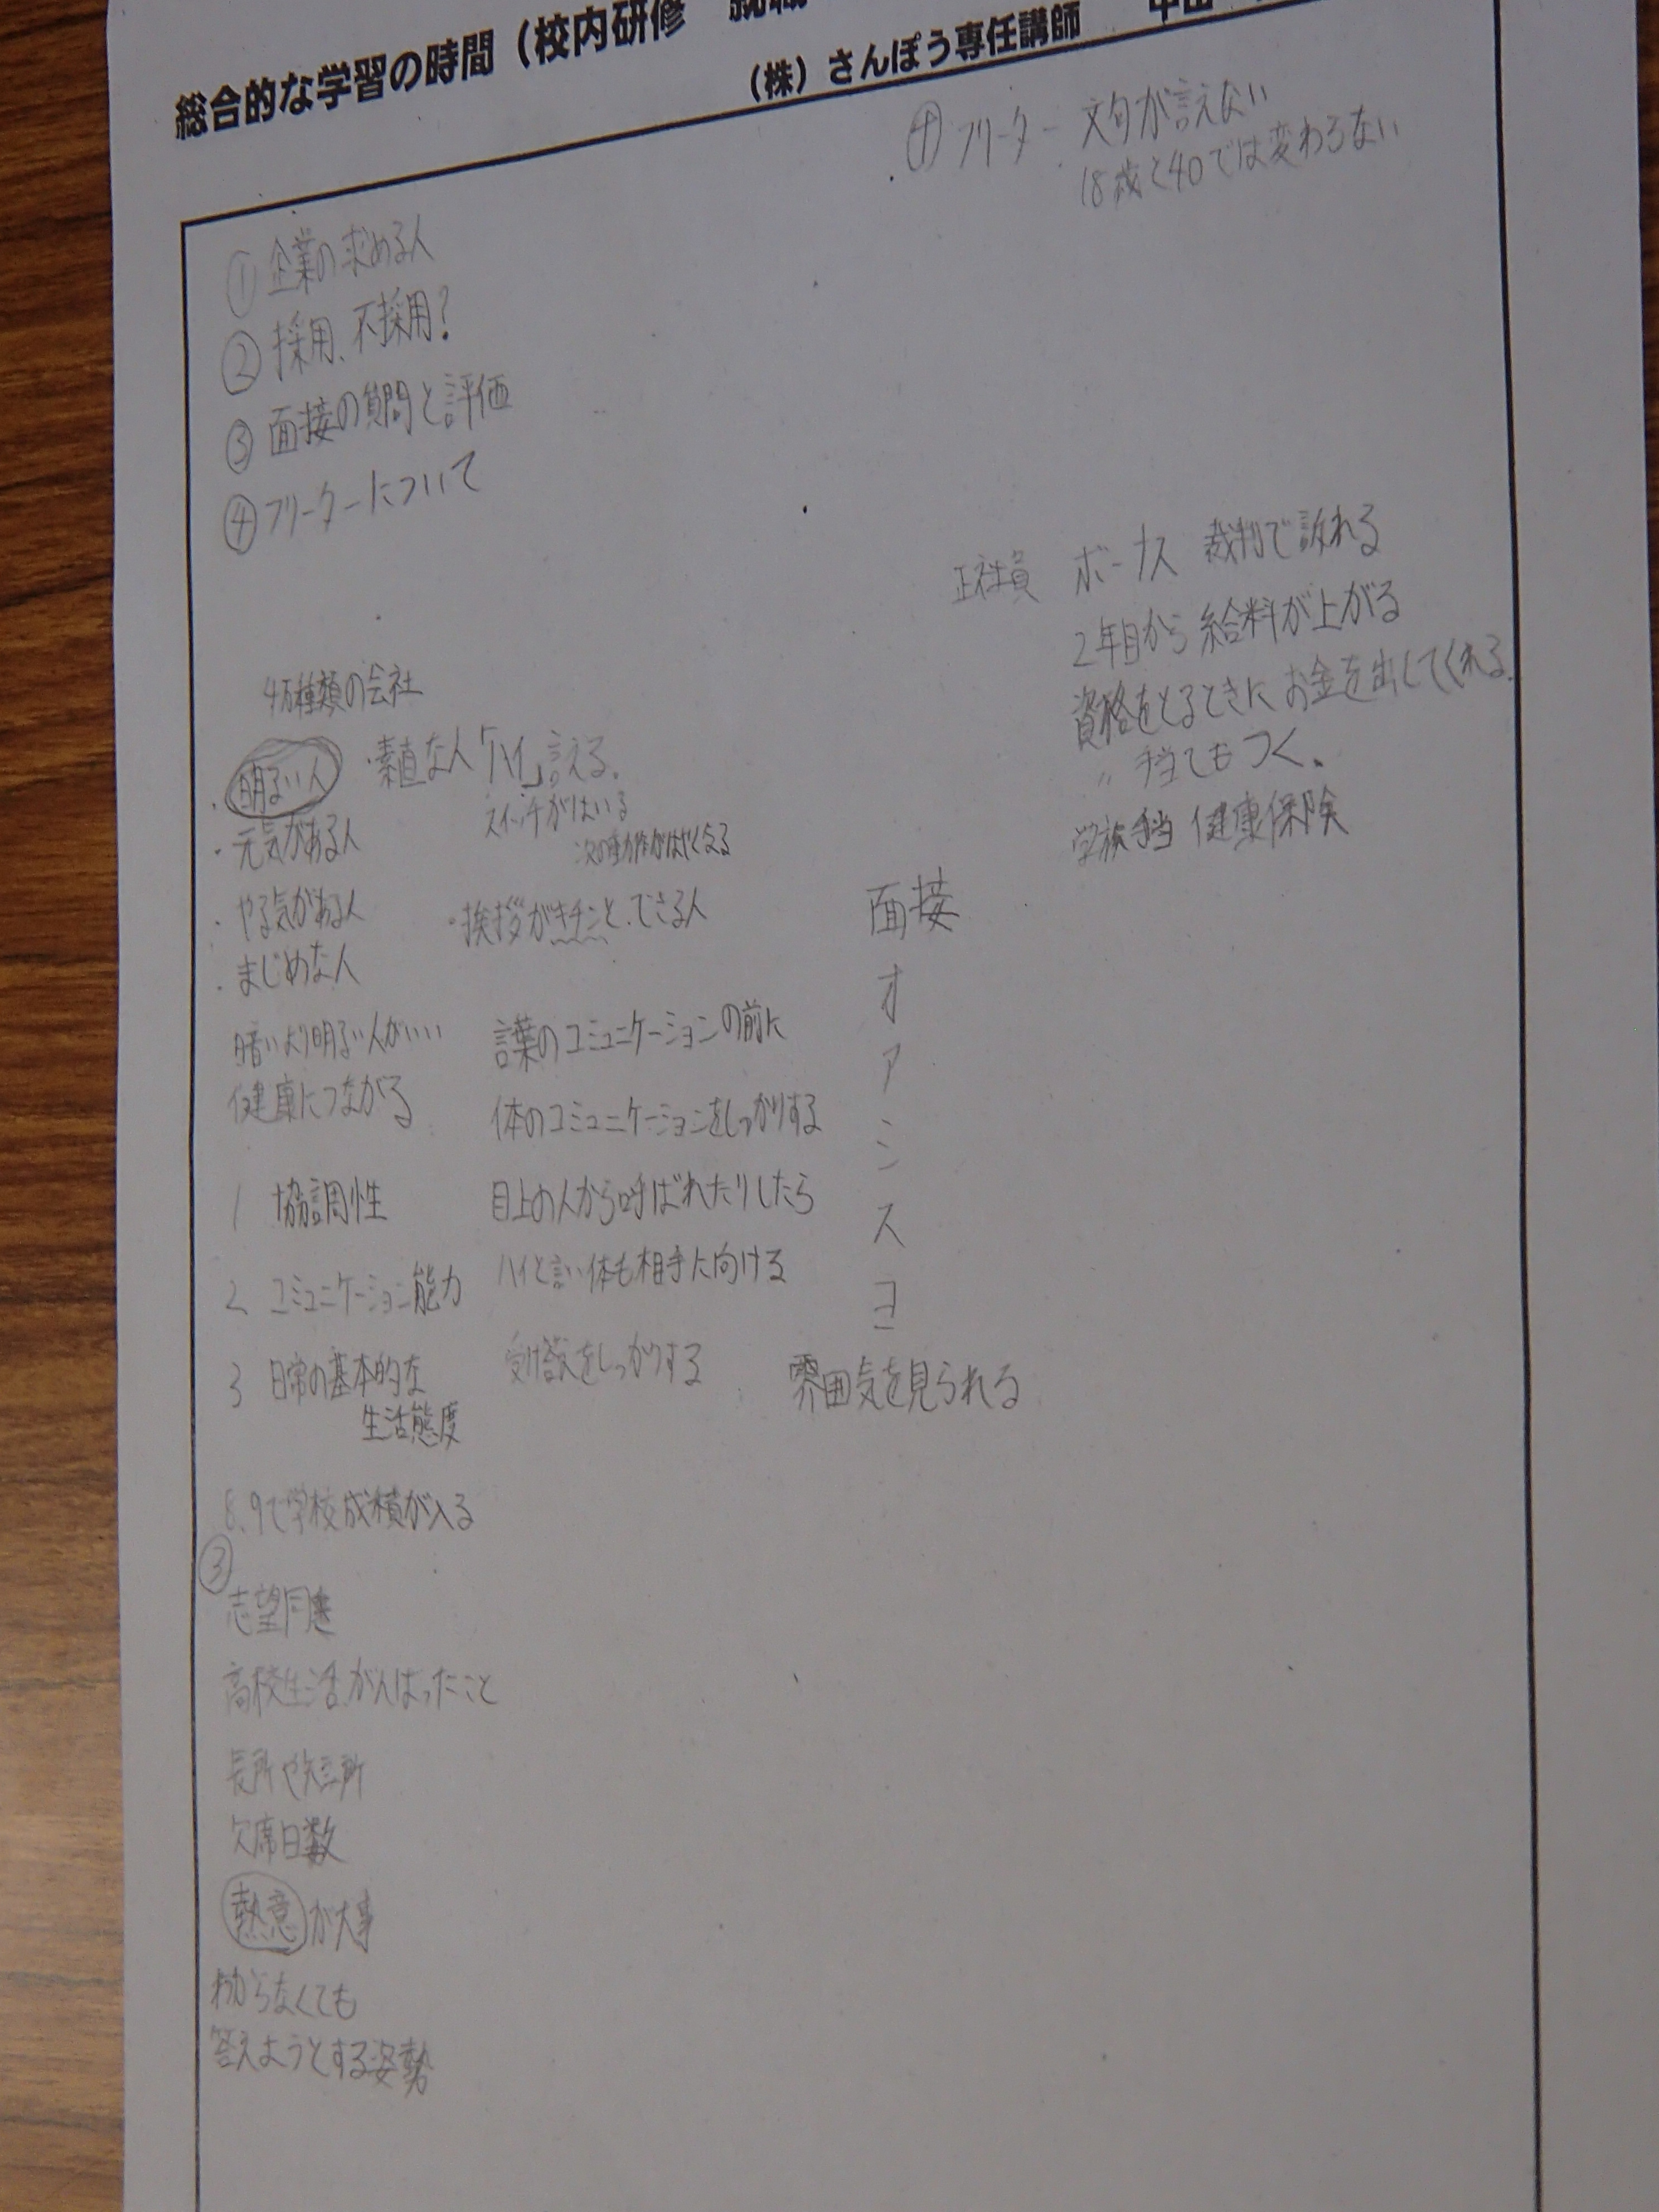 総合的な学習の時間（校内研修　就職
（株）さんぽう専任講師　中田
①企業の求める人
②採用、不採用？
③面接の質問と評価
④フリーターについて
4万種類の会社
・明るい人
・元気がある人
・やる気がある人
・まじめな人
暗いより明るい人がいい
健康につながる
1 協調性
2 コミュニケーション能力
3 日常の基本的な
生活態度
8、9で学校成績が入る
③
志望同
高校生活がんばったこと
長所や短所
欠席日数
熱意が大事
わからなくても
答えようとする姿勢
・素直な人「ハイ」言える。
スイッチがはいる
次の動作がはやくなる
・挨拶がキチンとできる人
言葉のコミュニケーションの前に
体のコミュニケーションをしっかりする
目上の人から呼ばれたりしたら
ハイと言い体も相手に向ける
受け答えをしっかりする
面接
オ
ア
シ
ス
ヨ
雰囲気を見られる
④フリーター 文句が言えない
18歳と40では変わらない
正社員 ボーナス 裁判で訴れる
2年目から給料が上がる
資格をとるときにお金を出してくれる。
〃 手当てもつく。
族手当 健康保険